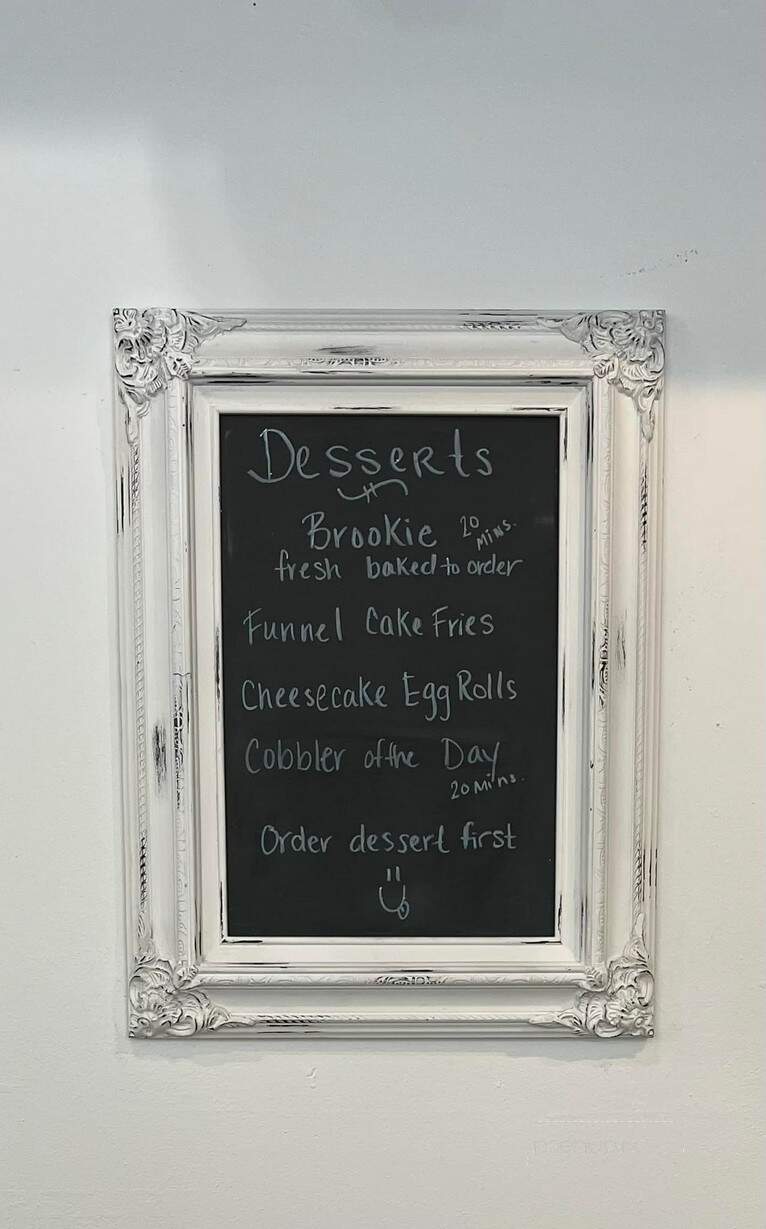 Desserts
Brookie 20 Mins.
fresh baked to order
Funnel Cake Fries
Cheesecake Egg Rolls
Cobbler of the Day
20 Mins.
Order dessert first